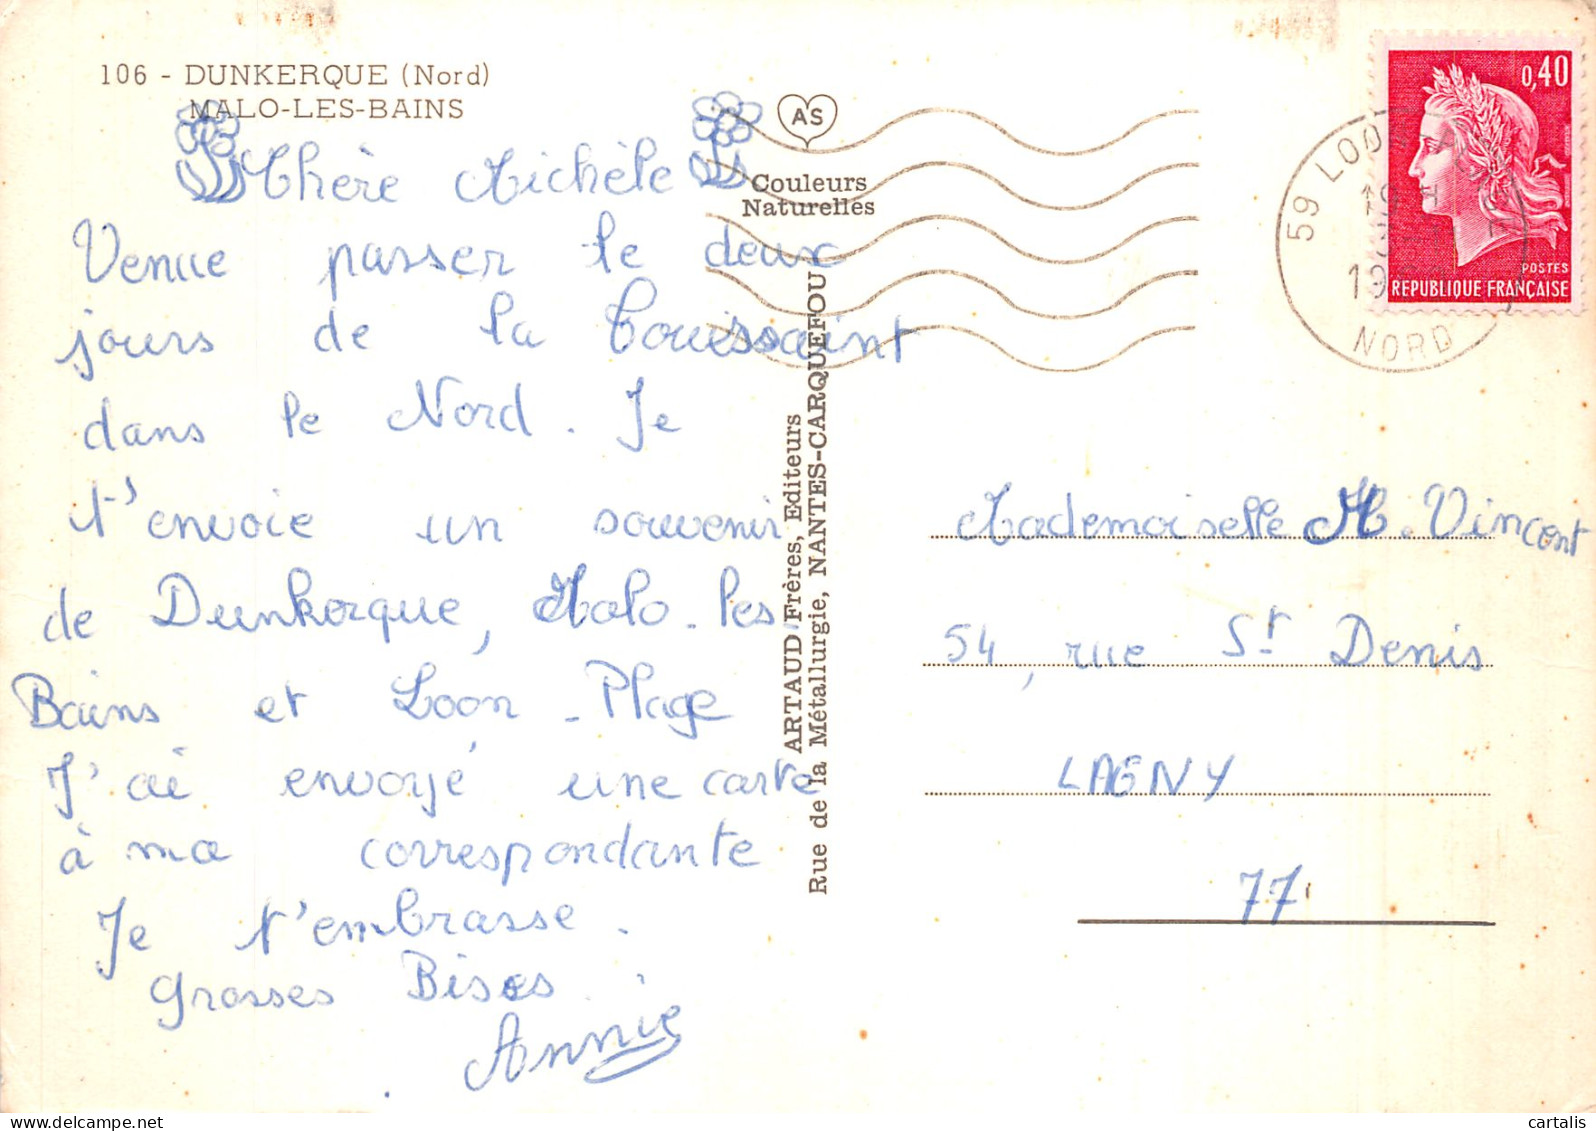 106 - DUNKERQUE (Nord)
MALO-LES-BAINS
Chère Michèle
Venue passer le deux
jours de la Touissaint
dans le Nord. Je
t'envoie un souvenir
de Dunkerque, Malo-les-
Bains et Loon-Plage
J'ai envoyé une carte
à ma correspondante
Je t'embrasse.
Grosses Bises.
Annie
AS
Couleurs
Naturelles
ARTAUD Frères, Editeurs
Rue de la Métallurgie, NANTES-CARQUEFOU
0,40
POSTES
REPUBLIQUE FRANÇAISE
59 LOON
NORD
Mademoiselle M. Vincent
54, rue St Denis
LAGNY
77
cartalis
www.delcampe.net